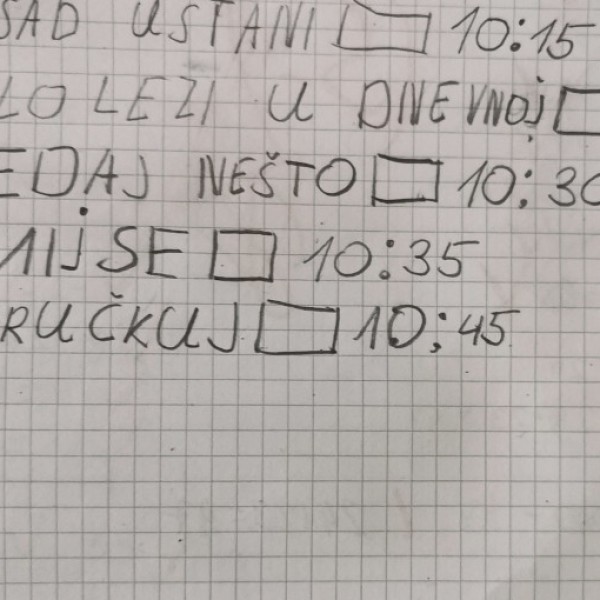 SAD USTANI 10:15
LO LEZI U DNEVNOJ
EDAJ NEŠTO 10:30
MIJ SE 10:35
RUČKUJ 10:45